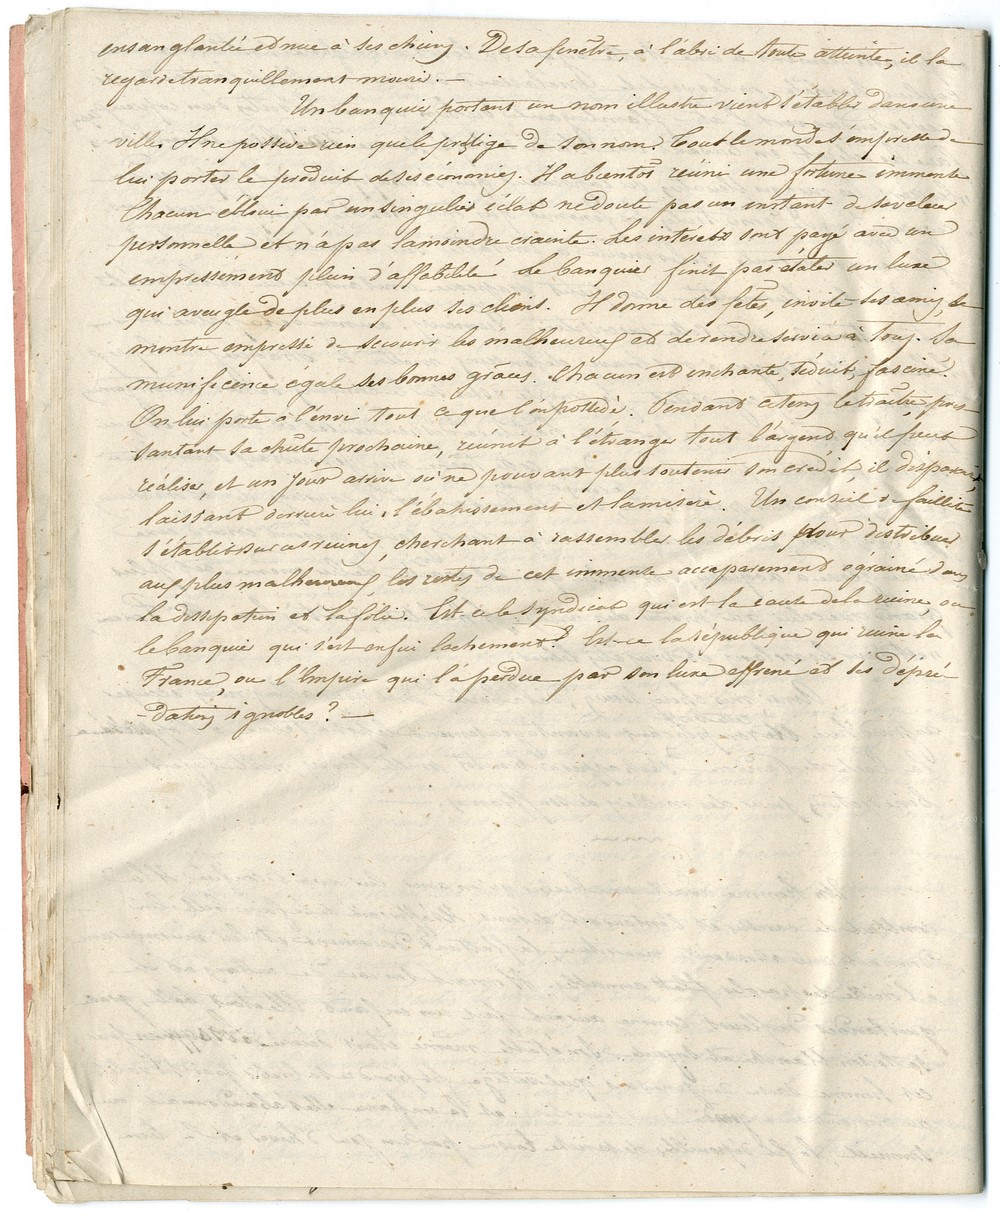 ensanglantée et nue à ses chiens. De sa fenêtre, à l'abri de toute atteinte, il la
regarde tranquillement mourir. —
Un banquier portant un nom illustre vient s'établir dans une
ville. Il ne possède rien que le préstige de son nom. Tout le monde s'empresse de
lui porter le produit de ses économies. Il a bientôt réuni une fortune immense
Chacun ébloui par un singulier éclat ne doute pas un instant de sa valeur
personnelle et n'a pas la moindre crainte. Les interets sont payé avec un
empressement plein d'affabilité Le banquier finit par étaler un luxe
qui aveugle de plus en plus ses clients. Il donne des fêtes, invite ses amis, se
montre empressé de secourir les malheureux et de rendre service à tous. Sa
munificence égale ses bonnes grâces. Chacun est enchanté, séduit, fasciné.
On lui porte à l'envi tout ce que l'on possède. Pendant ce tems le traître, pres-
santant sa chûte prochaine, réunit à l'étranger tout l'argend qu'il peut
réaliser, et un jour arrive où ne pouvant plus soutenir son crédit il disparait,
laissant derrière lui, l'ébatissement et la misère. Un conseil de faillite
s'établit sur ces ruines, cherchant à rassembler les débris pour distribuer
aux plus malheureux, les restes de cet immense accaparement égrainé dans
la dissipation et la folie. Est-ce le syndicat qui est la cause de la ruine, ou
le banquier qui s'est enfui lachement? Est-ce la république qui ruine la
France, ou l'Empire qui l'a perdue par son luxe effréné et ses dépré-
dations ignobles? —